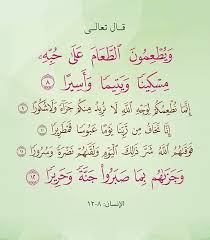 قال تعالى
وَيُطْعِمُونَ ٱلطَّعَامَ عَلَىٰ حُبِّهِۦ
مِسْكِينًا وَيَتِيمًا وَأَسِيرًا ٨
إِنَّمَا نُطْعِمُكُمْ لِوَجْهِ ٱللَّهِ لَا نُرِيدُ مِنكُمْ جَزَآءً وَلَا شُكُورًا ٩
إِنَّا نَخَافُ مِن رَّبِّنَا يَوْمًا عَبُوسًا قَمْطَرِيرًا ١٠
فَوَقَىٰهُمُ ٱللَّهُ شَرَّ ذَٰلِكَ ٱلْيَوْمِ وَلَقَّىٰهُمْ نَضْرَةً وَسُرُورًا ١١
وَجَزَىٰهُم بِمَا صَبَرُوا۟ جَنَّةً وَحَرِيرًا ١٢
الإنسان: ٨-١٢